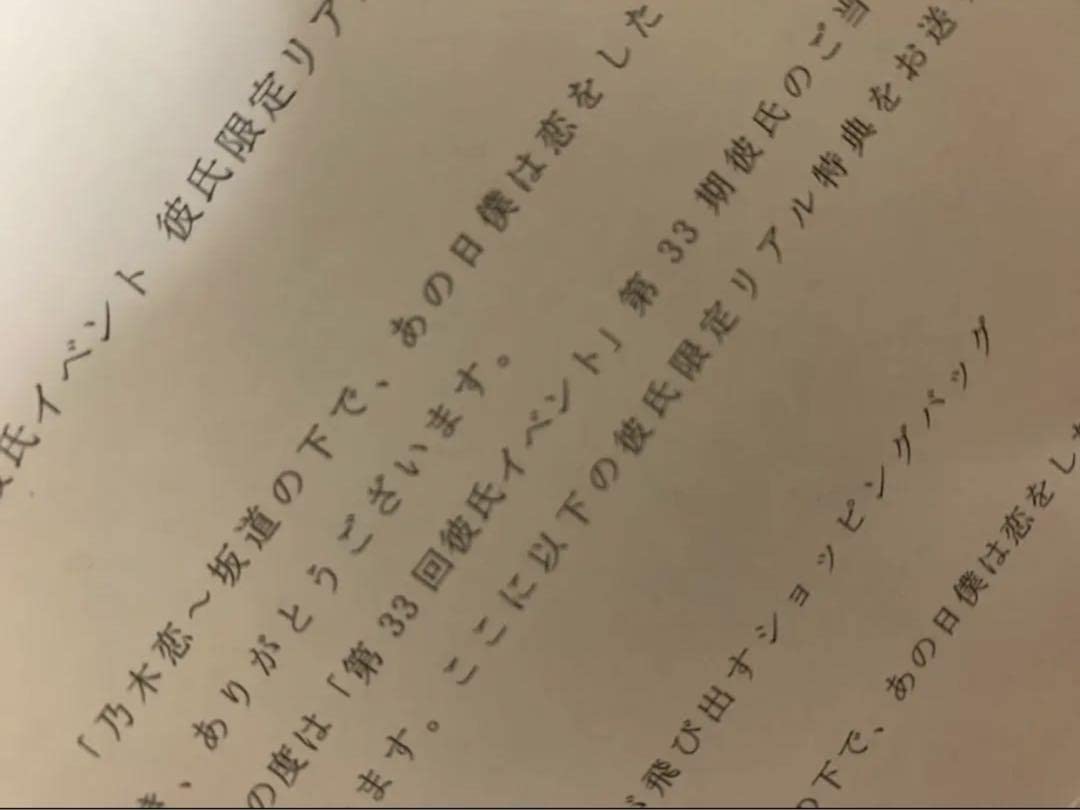 彼氏イベント 彼氏限定リア
「乃木恋～坂道の下で、あの日僕は恋をした
き、ありがとうございます。
の度は「第 33 回彼氏イベント」第 33 期彼氏のご当
ます。ここに以下の彼氏限定リアル特典をお送
飛び出すショッピングバッグ
の下で、あの日僕は恋をした